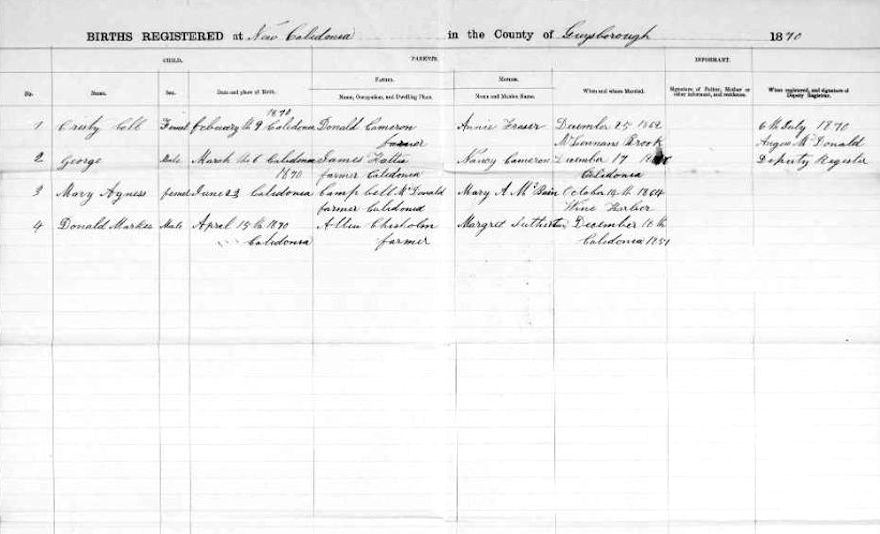 BIRTHS REGISTERED at New Caledonia in the County of Guysborough 1870
CHILD. PARENTS. INFORMANT.
No. Name. Sex. Date and place of Birth. Father. Name, Occupation, and Dwelling Place. Mother. Name and Maiden Name. When and where Married. Signature of Father, Mother or other informant, and residence. When registered, and signature of Deputy Registrar.
1870
1 Femel February the 9 Caledonia Donald Cameron Annie Fraser December 25 1862 6th July 1870
farmer McLennans Brook Angus McDonald
2 George Male March the 6 Caledonia James Nancy Cameron December 17 Deputy Register
1870 farmer Caledonia Caledonia
3 Mary Agness femel June 23 Caledonia Campbell McDonald Mary A McBain October 14th 1864
farmer Caledonia Wine Harbor
4 Donald Male April 15th 1870 Allen Chisholm Margret December 16th
Caledonia farmer Caledonia 1851